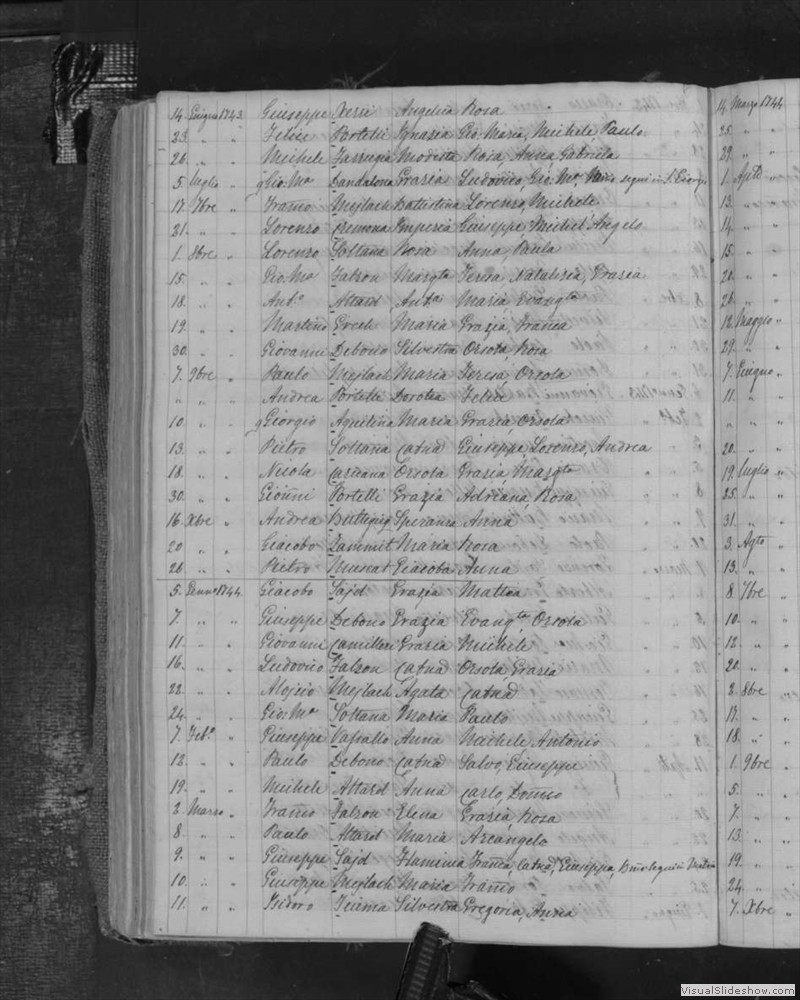 14. Giugno 1743 Giuseppe Xerri Angelica Rosa
23. " " Felice Portelli Ignazia Gio. Maria, Michele, Paulo
26. " " Michele Farrugia Modesta Rosa, Anna, Gabriela
5. luglio " Gio. Ma Dandalona Grazia Ludovico, Gio. Ma,
17. 7bre " Mejlach Battistina Lorenzo, Michele
21. " " Lorenzo Cremona Imperia Giuseppe, Michel'Angelo
1. 8bre " Lorenzo Soltana Rosa Anna, Paula
15. " " Gio. Ma Falzon Margta Teresa, Natalizia, Grazia
18. " " Anto Attard Anta Maria, Evangta
19. " " Martino Grech Maria Grazia, Franca
30. " " Giovanni Debono Silvestra Orsola, Rosa
7. 9bre " Paulo Mejlach Maria Teresa, Orsola
" " " Andrea Portelli Dorotea Felice
10. " " Giorgio Aquilina Maria Grazia, Orsola
13. " " Pietro Soltana Catna Giuseppe, Lorenzo, Andrea
18. " " Nicola Caruana Orsola Grazia, Margta
30. " " Gioñni Portelli Grazia Adriana, Rosa
16. Xbre " Andrea Buttigieg Speranza Anna
20 " " Giacobo Zammit Maria Rosa
26. " " Pietro Muscat Giacoba Anna
5. Genno 1744. Giacobo Sajd Grazia Mattea
7. " " Giuseppe Debono Grazia Evangta Orsola
11. " " Giovanni Camilleri Grazia Michele
16. " " Ludovico Falzon Catna Orsola, Grazia
22. " " Alojsio Mejlach Agata Catna
24. " " Gio. Ma Soltana Maria Paulo
7. Febo " Giuseppe Vassallo Anna Michele, Antonio
12. " " Paulo Debono Catna Salvo, Giuseppe
19. " " Michele Attard Anna Carlo, Domco
2. Marzo " Falzon Elena Grazia, Rosa
8. " " Paulo Attard Maria Arcangelo
9. " " Giuseppe Sajd Flaminia Franca, Catna, Giuseppa,
10. " " Giuseppe Mejlach Maria
11. " " Isidoro Silvestra Gregoria, Anna
14. Marzo 1744
25. " "
29. " "
1. Aple "
13. " "
14. "
15. "
20. "
26. "
12. Maggio "
29. "
7. Giugno "
11. "
" "
20. "
19. luglio "
25. "
31. "
3. Agto "
13. "
8. 7bre
10. "
12. "
20. "
2. 8bre
17. "
18. "
1. 9bre
5. "
7. "
13. "
19. "
24. "
7. Xbre
VisualSlideshow.com